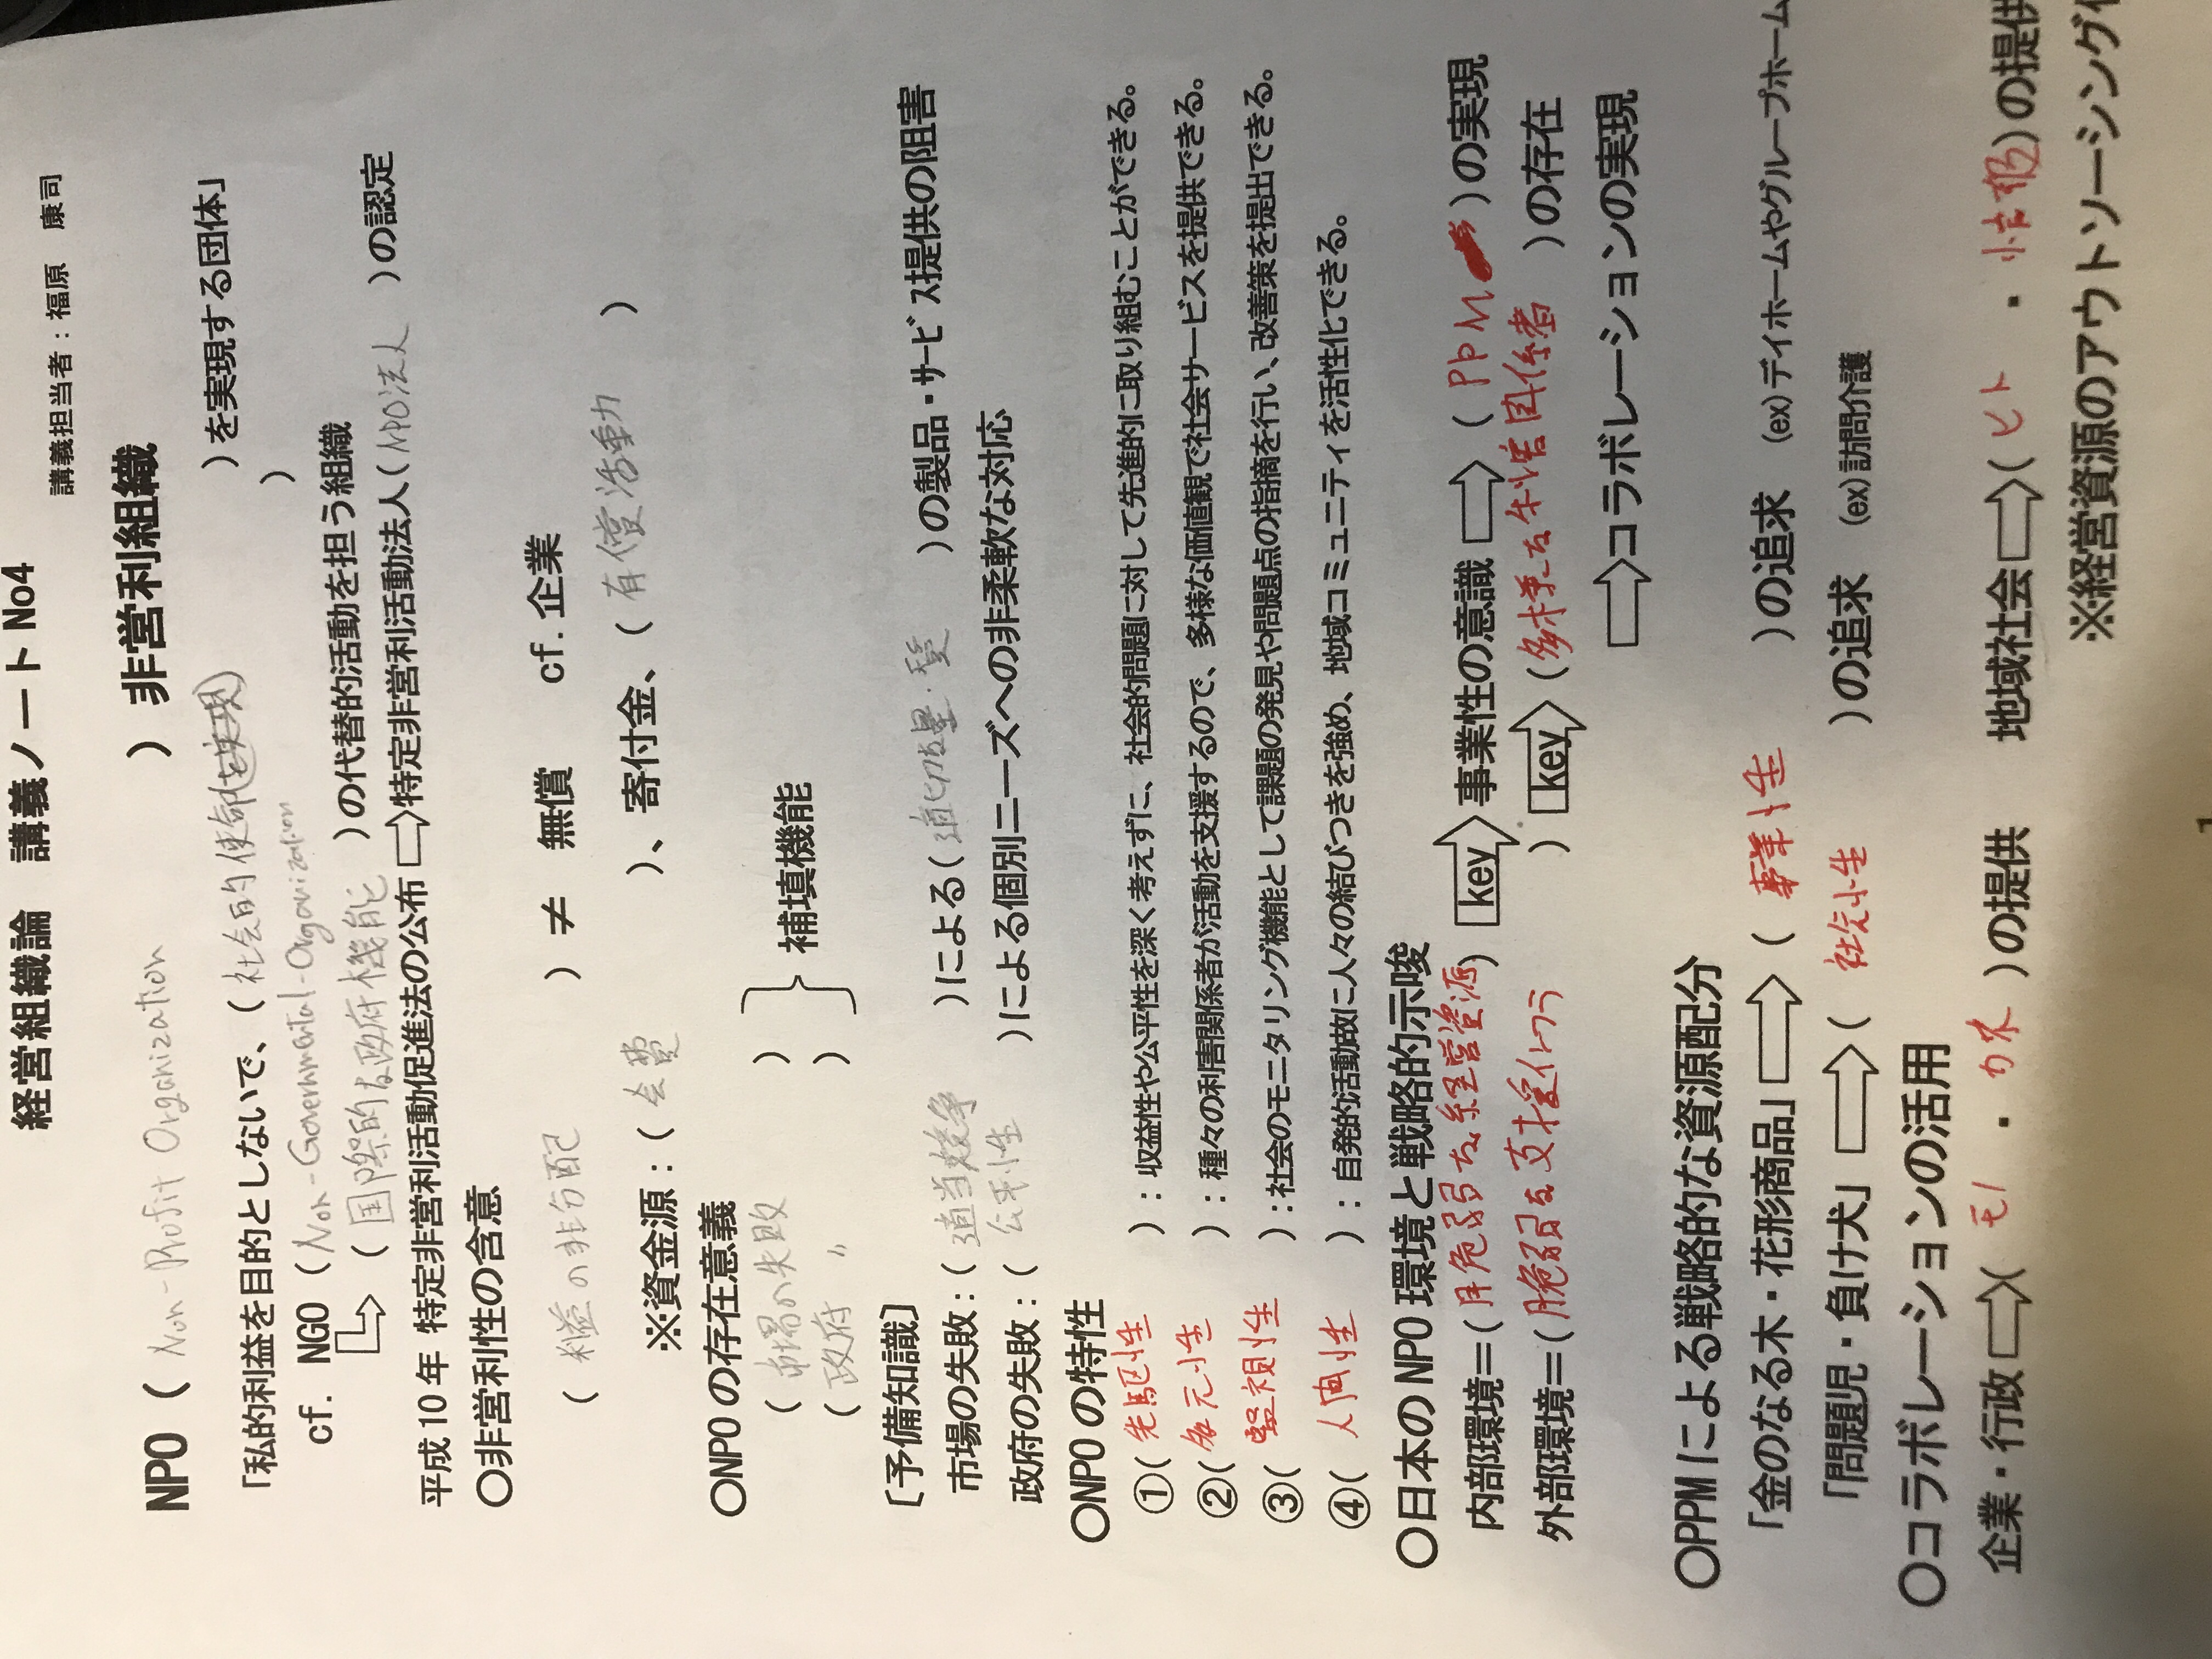 経営組織論　講義ノート No4
講義担当者：福原　康司
NPO（ Non-Profit Organization ）非営利組織
「私的利益を目的としないで、（ 社会的使命(を実現) ）を実現する団体」
cf. NGO（ Non-Governmental-Organization ）
（ 国際的な政府機能 ）の代替的活動を担う組織
平成10年 特定非営利活動促進法の公布⇨特定非営利活動法人（ NPO法人 ）の認定
〇非営利性の含意
（ 利益の非分配 ）≠ 無償　cf. 企業
※資金源：（ 会費 ）、寄付金、（ 有償活動 ）
〇NPOの存在意義
（ 市場の失敗 ）
（ 政府 〃 ）
補填機能
〔予備知識〕
市場の失敗：（ 適当競争 ）による（ 適切な量・質 ）の製品・ｻｰﾋﾞｽ提供の阻害
政府の失敗：（ 公平性 ）による個別ニーズへの非柔軟な対応
〇NPOの特性
①（ 先駆性 ）：収益性や公平性を深く考えずに、社会的問題に対して先進的に取り組むことができる。
②（ 多元性 ）：種々の利害関係者が活動を支援するので、多様な価値観で社会サービスを提供できる。
③（ 監視性 ）：社会のモニタリング機能として課題の発見や問題点の指摘を行い、改善策を提出できる。
④（ 人間性 ）：自発的活動故に人々の結びつきを強め、地域コミュニティを活性化できる。
〇日本のNPO環境と戦略的示唆
内部環境＝（ 脆弱な経営資源 ）key 事業性の意識⇨（ PPM ）の実現
外部環境＝（ 脆弱な支援インフラ ）key（ 多様な利害関係者 ）の存在
⇨コラボレーションの実現
〇PPMによる戦略的な資源配分
「金のなる木・花形商品」⇨（ 事業性 ）の追求　(ex)デイホームやグループホーム
「問題児・負け犬」⇨（ 社会性 ）の追求　(ex)訪問介護
〇コラボレーションの活用
企業・行政⇨（ モノ ・ カネ ）の提供　地域社会⇨（ ヒト ・ 情報 ）の提供
※経営資源のアウトソーシング
1